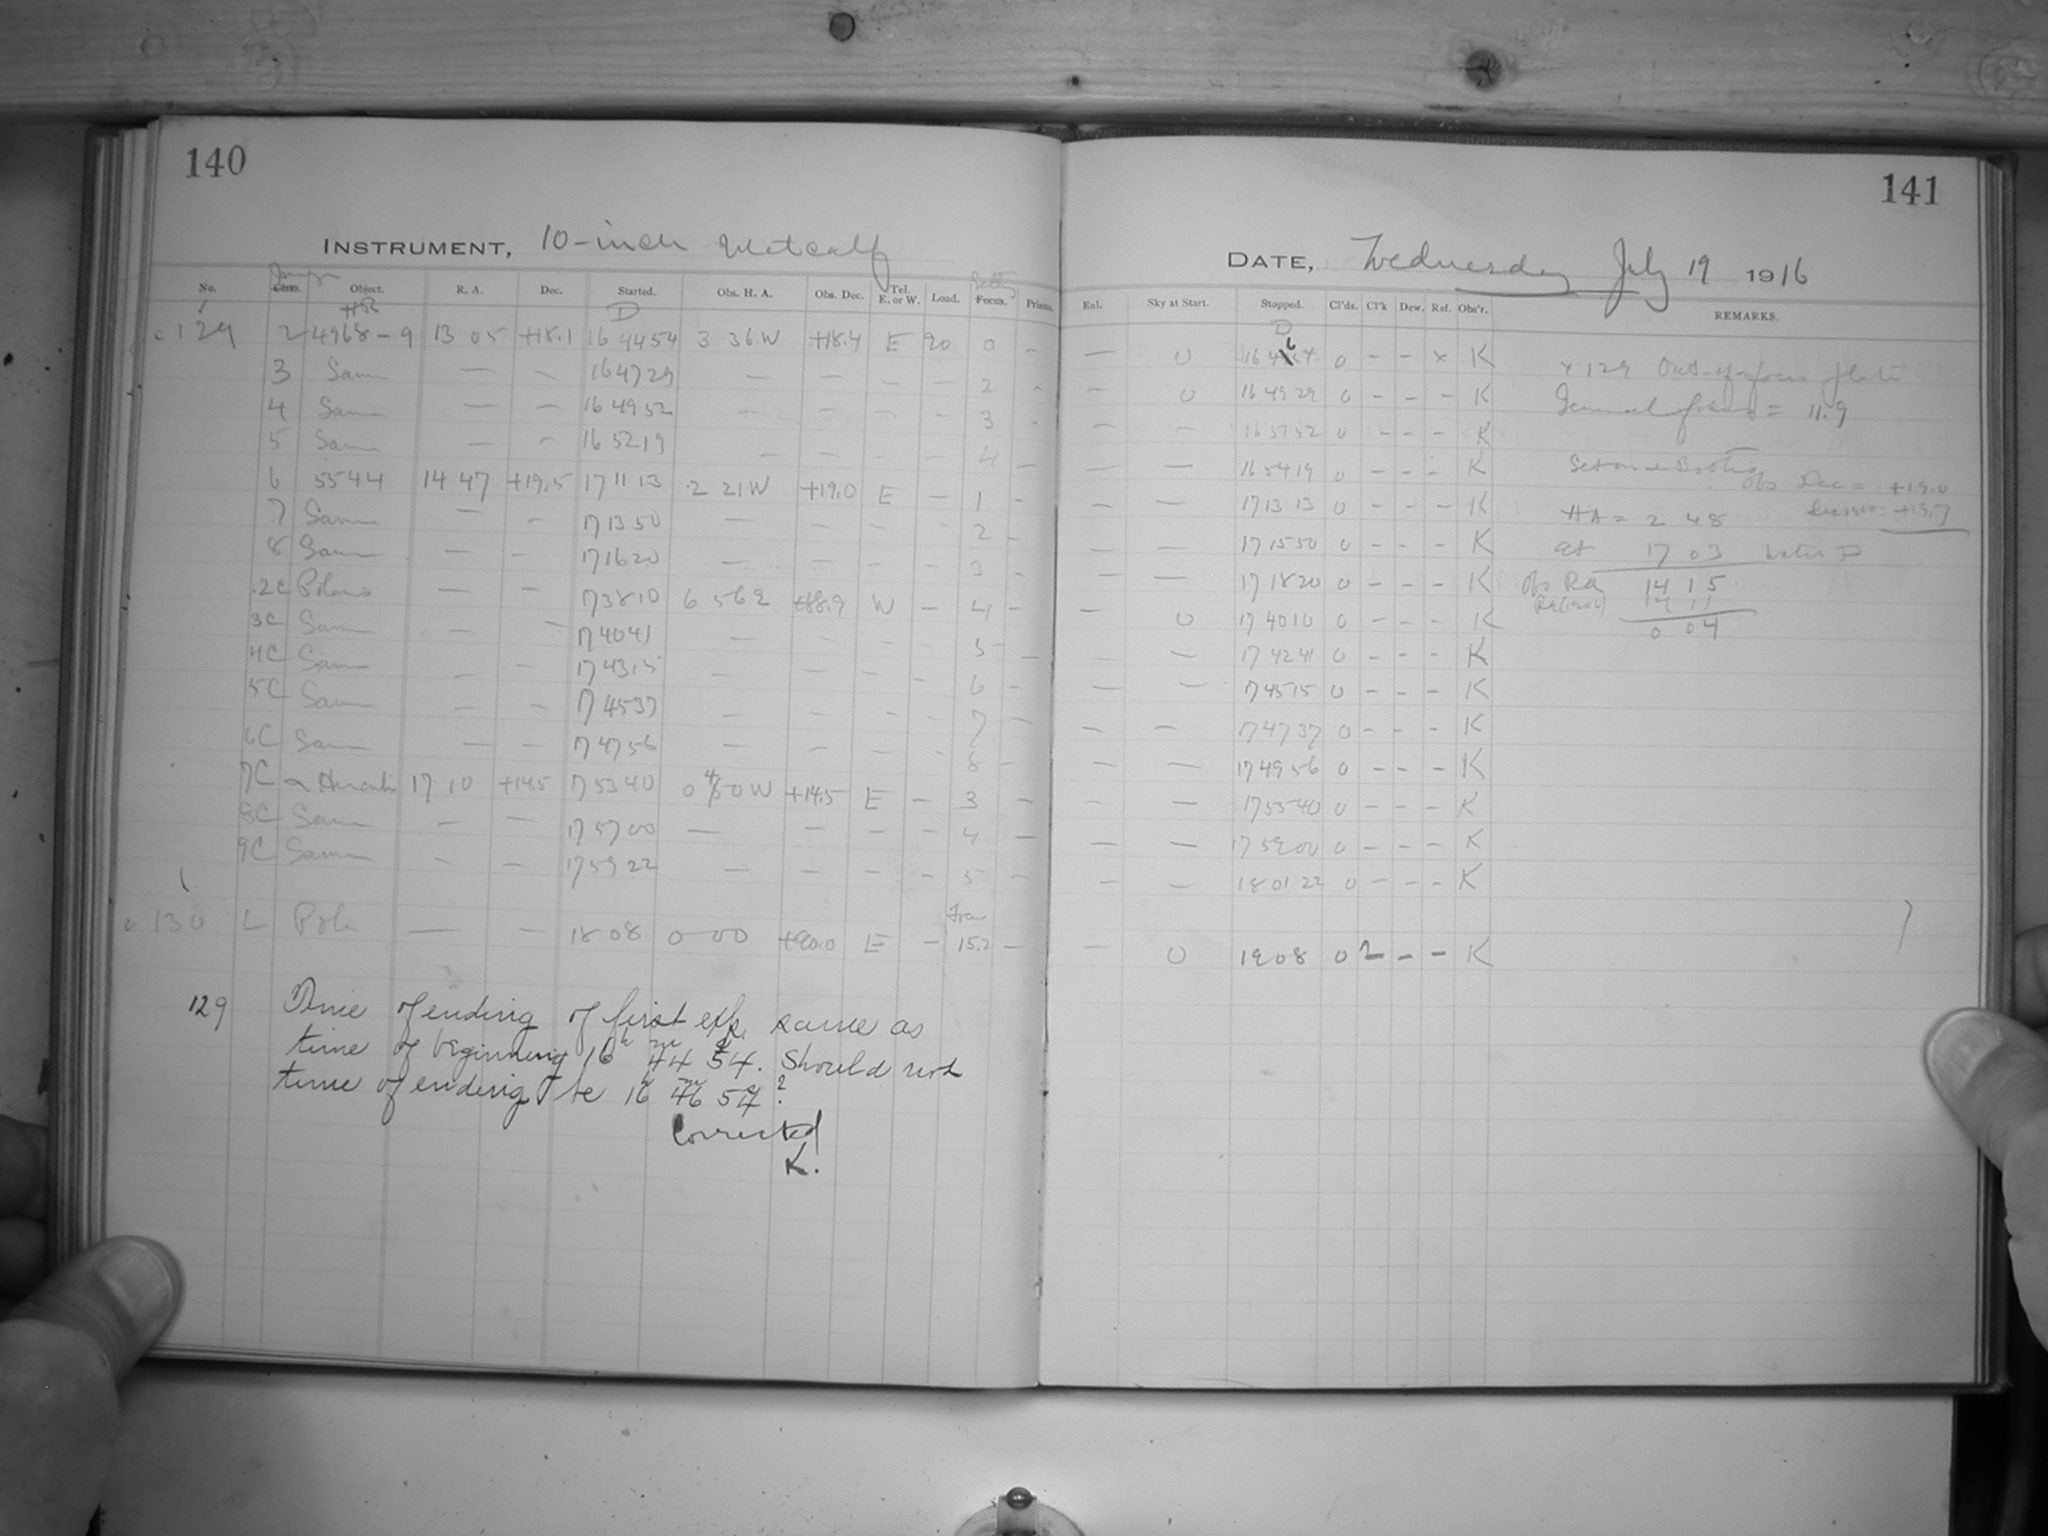 140
INSTRUMENT, 10-inch Metcalf
No. Object. R. A. Dec. Started. Obs. H. A. Obs. Dec. Tel. E. or W. Load. Focus. Prisms.
HR D
129 2 4968-9 13 05 +18.1 16 44 54 3 36 W +18.4 E 90 0 -
3 Same — — 16 47 29 — — - - 2 -
4 Same — — 16 49 52 — — - - 3 -
5 Same — — 16 52 19 — — - - 4 —
6 5544 14 47 +19.5 17 11 13 2 21 W +19.0 E - 1 -
7 Same — — 17 13 50 — — - - 2 -
8 Same — — 17 16 20 — — - - 3 -
2C Polaris — — 17 38 10 6 56 2 +88.9 W - 4 -
3C Same — — 17 40 41 — — - - 5 —
4C Same — — 17 43 15 — — - - 6 -
5C Same — — 17 45 37 — — - - 7 —
6C Same — — 17 47 56 — — - - 8 -
7C α Herculis 17 10 +14.5 17 53 40 0 40 W +14.5 E - 3 -
8C Same — — 17 57 00 — — - - 4 —
9C Same — — 17 59 22 — — - - 5 -
130 L Pole — — 18 08 0 00 +90.0 E - 15.2 -
129 Time of ending of first exp. same as
time of beginning 16h 44m 54s. Should not
time of ending be 16h 46m 54s?
Corrected
K.
141
DATE, Wednesday July 19 1916
Enl. Sky at Start. Stopped. Cl'ds. Cl'k Dew. Ref. Obs'r. REMARKS.
D
— 0 16 46 54 0 - - x K x 129 Out-of-focus plate
— 0 16 49 29 0 - - - K = 11.9
— — 16 51 52 0 - - - K
— — 16 54 19 0 - - - K Set on Bootis
Obs Dec = +19.0
— — 17 13 13 0 - - - K HA = 2 48 +19.7
— — 17 15 50 0 - - - K at 17 03
— — 17 18 20 0 - - - K Obs RA 14 15
RA (1900) 14 11
— 0 17 40 10 0 - - - K 0 04
— — 17 42 41 0 - - - K
— — 17 45 15 0 - - - K
— — 17 47 37 0 - - - K
— — 17 49 56 0 - - - K
— — 17 55 40 0 - - - K
— — 17 59 00 0 - - - K
— — 18 01 22 0 - - - K
— 0 19 08 0 2 - - K